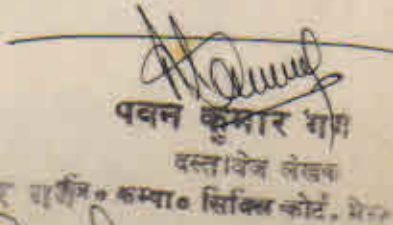 पवन कुमार गर्ग
दस्तावेज लेखक
कम्पा० सिविल कोर्ट, मेरठ